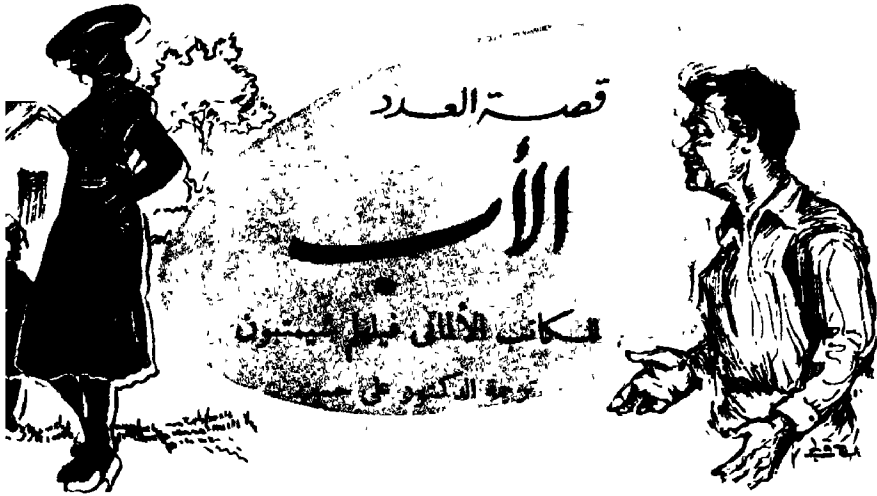 قصة العدد
الأب
للكاتب الألماني فيلهلم
ترجمة الدكتور علي